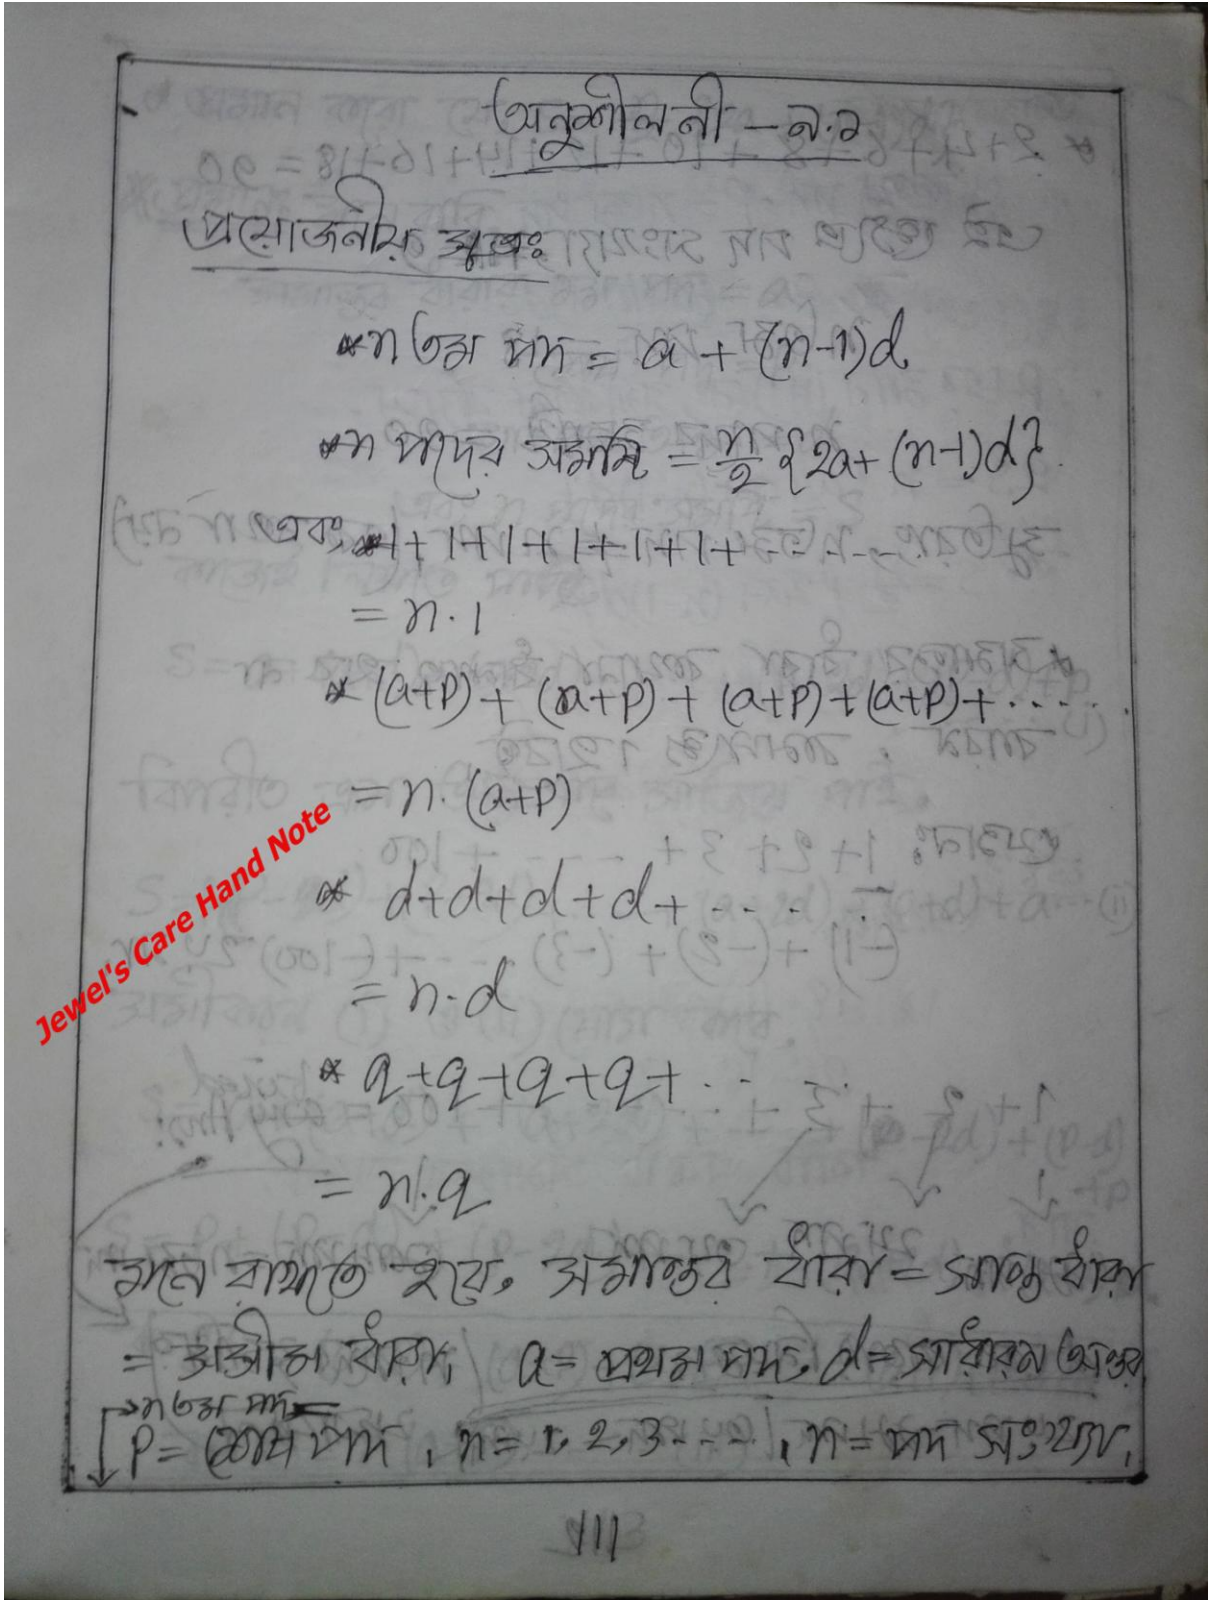 অনুশীলনী - ৯.১
প্রয়োজনীয় সূত্রঃ
* n তম পদ = a + (n-1)d
* n পদের সমষ্টি = n/2 {2a+ (n-1)d}
এবং, * 1+1+1+1+1+1+ - - - - -
= n.1
* (a+p) + (a+p) + (a+p) + (a+p) + .....
= n. (a+p)
* d+d+d+d+ . . . . .
= n.d
* q+q+q+q+ . . . .
= n.q
মনে রাখতে হবে, সমান্তর ধারা = সান্ত ধারা
= অসীম ধারা, a = প্রথম পদ, d = সাধারন অন্তর
→ n তম পদ
p = শেষ পদ, n = 1, 2, 3 - - - -, n = পদ সংখ্যা,
111
Jewel's Care Hand Note